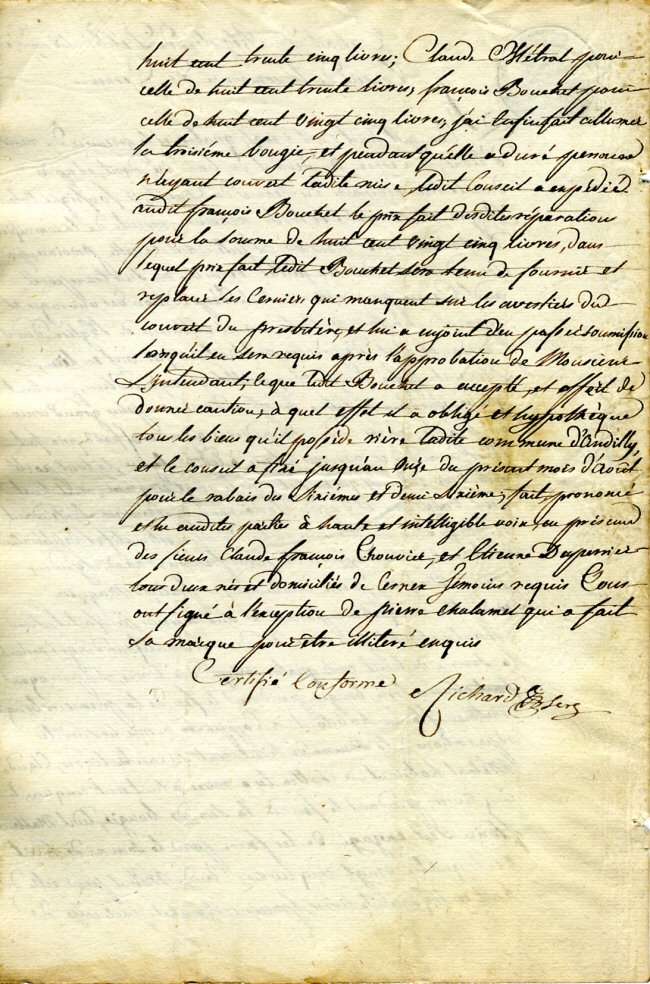 huit cent trente cinq livres; Claude Métral pour
celle de huit cent trente livres, françois Bouchet pour
celle de huit cent vingt cinq livres, j'ai Enfin fait allumer
la troisiéme bougie, et pendant qu'elle a duré personne
n'ayant couvert ladite mise, ledit Conseil a expédié
audit françois Bouchet le prix fait desdites réparations
pour la somme de huit cent vingt cinq livres, dans
lequel prix fait, ledit Bouchet sera tenu de fournir et
replacer les Corniers qui manquent sur les arestiers du
couvert du presbitère, et lui a enjoint d'en passer soumission
lorsqu'il en sera requis après l'approbation de Monsieur
L'intendant, ce que ledit Bouchet a accepté, et offert de
donner caution, à quel effet il a obligé et hypothèqué
tous les biens qu'il posséde rière ladite commune d'Andilly,
et le conseil a fixé jusqu'au onze du présent mois d'août
pour le rabais du Sixiémes et demi Sixième, fait, prononcé
et lu audites parties à haute et intelligible voix, en présence
des sieurs Claude françois Chouvier, et Etienne Duperrier
tous deux nés et domiciliés de Cernex témoins requis Tous
ont signé à l'exception de pierre chalamel qui a fait
sa marque pour être illiteré enquis
Certifié Conforme Richard Secr